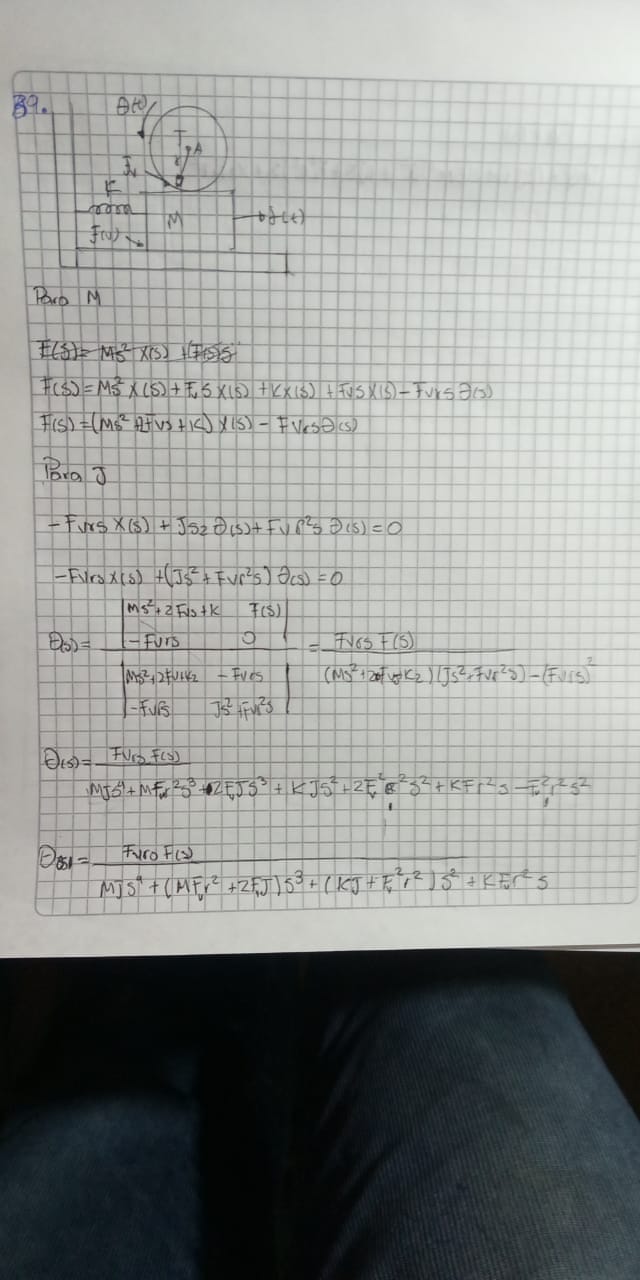 39.
θ(t)
J
r
Fv
K
M
f(t)
F(v)
Para M
F(s)=Ms² X(s) +
F(s)=Ms² X(s)+Fv s X(s) +KX(s) +Fvs X(s)-Fvrs θ(s)
F(s)=(Ms²+2Fvs+K) X(s) - Fvrsθ(s)
Para J
-Fvrs X(s) + Js2 θ(s)+Fvr²s θ(s)=0
-Fvrs x(s) +(Js²+Fvr²s) θ(s)=0
|Ms²+2Fvs+K F(s)|
θ(s)= |-Fvrs 0| = Fvrs F(s)
|Ms²+2Fv+K2 -Fvrs| (Ms²+2Fvs+K2)(Js²+Fvr²s)-(Fvrs)²
|-Fvrs Js²+Fvr²s|
θ(s)= Fvrs F(s)
MJs⁴+MFvr²s³+2FvJS³+KJs²+2Fv²r²s²+KFvr²s-Fv²r²s²
θ(s)= Fvrs F(s)
MJs⁴+(MFvr²+2FvJ)s³+(KJ+Fv²r²)s²+KFvr²s